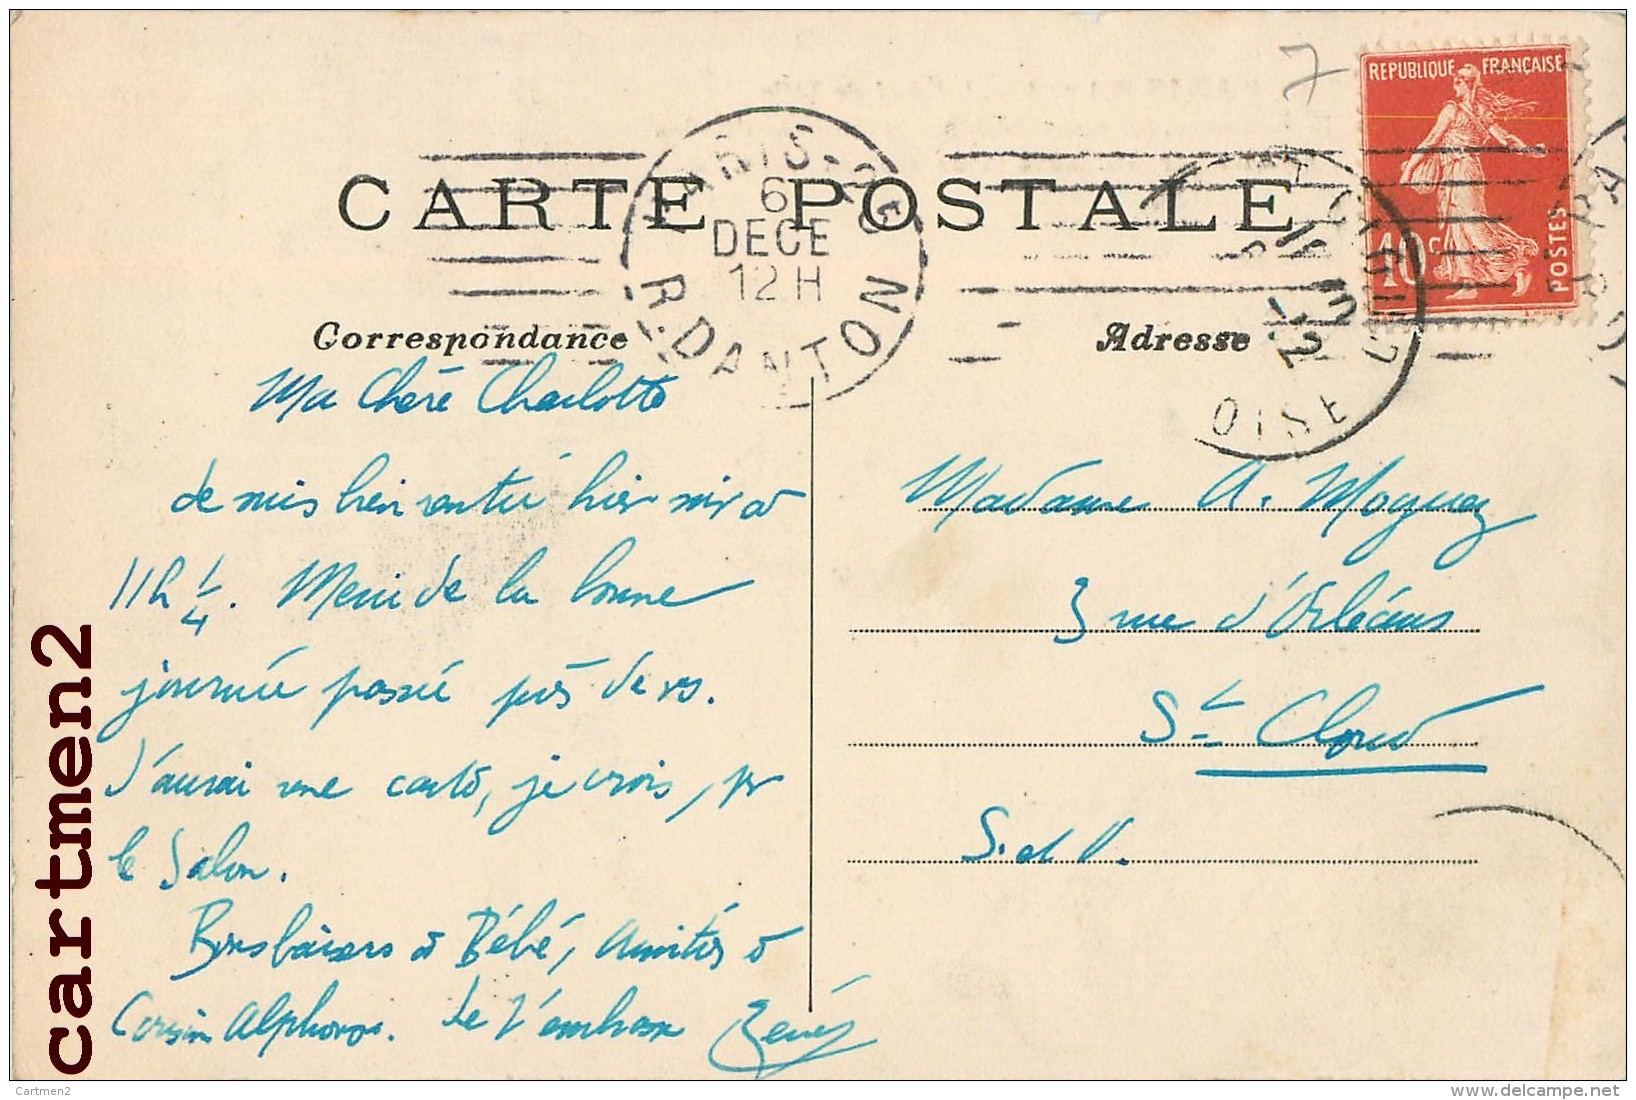 REPUBLIQUE FRANÇAISE
10c
POSTES
CARTE POSTALE
PARIS
6
DECE
12 H
R. DANTON
OISE
Correspondance
Adresse
Ma Chère Charlotte
Je suis bien rentré hier soir à
11h 1/4. Merci de la bonne
journée passée près de vs.
J'aurai une carte, je crois, pr
le Salon.
Bons baisers à Bébé, Amitiés à
Cousin Alphonse. Je t'embrasse
Madame A. Moguez
3 rue d'Orléans
St Cloud
S. et O.
7
cartmen2
Cartmen2
www.delcampe.net